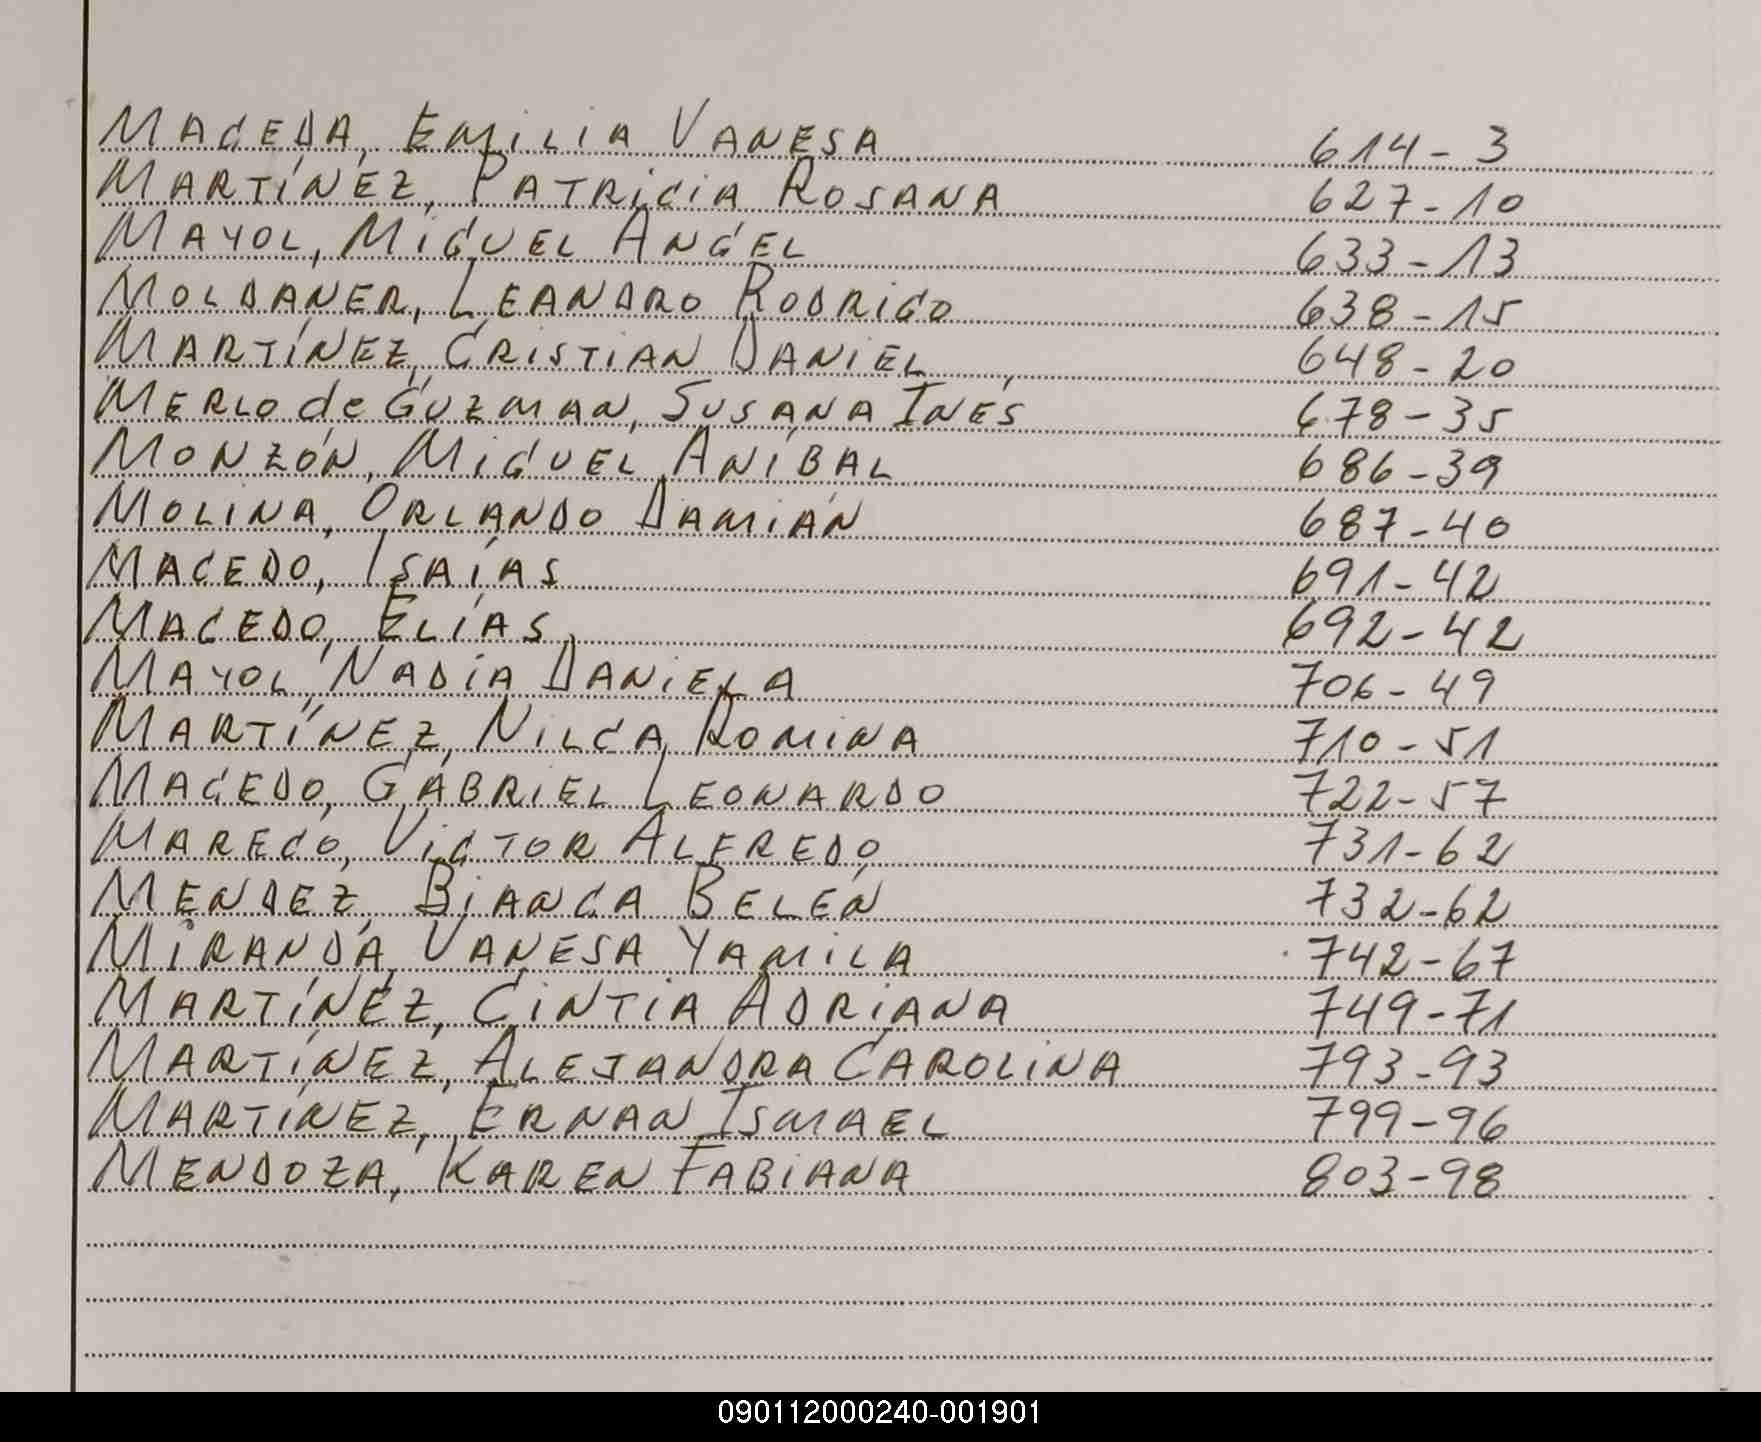 MACEDA, EMILIA VANESA 614-3
MARTÍNEZ, PATRICIA ROSANA 627-10
MAYOL, MIGUEL ANGEL 633-13
MOLDANER, LEANDRO RODRIGO 638-15
MARTÍNEZ, CRISTIAN DANIEL 648-20
MERLO de GUZMAN, SUSANA INÉS 678-35
MONZÓN, MIGUEL ANÍBAL 686-39
MOLINA, ORLANDO DAMIÁN 687-40
MACEDO, ISAÍAS 691-42
MACEDO, ELÍAS 692-42
MAYOL, NADIA DANIELA 706-49
MARTÍNEZ, NILCA ROMINA 710-51
MACEDO, GABRIEL LEONARDO 722-57
MARECO, VICTOR ALFREDO 731-62
MENDEZ, BIANCA BELÉN 732-62
MIRANDA, VANESA YAMILA 742-67
MARTÍNEZ, CINTIA ADRIANA 749-71
MARTÍNEZ, ALEJANDRA CAROLINA 793-93
MARTÍNEZ, ERNAN ISMAEL 799-96
MENDOZA, KAREN FABIANA 803-98
090112000240-001901